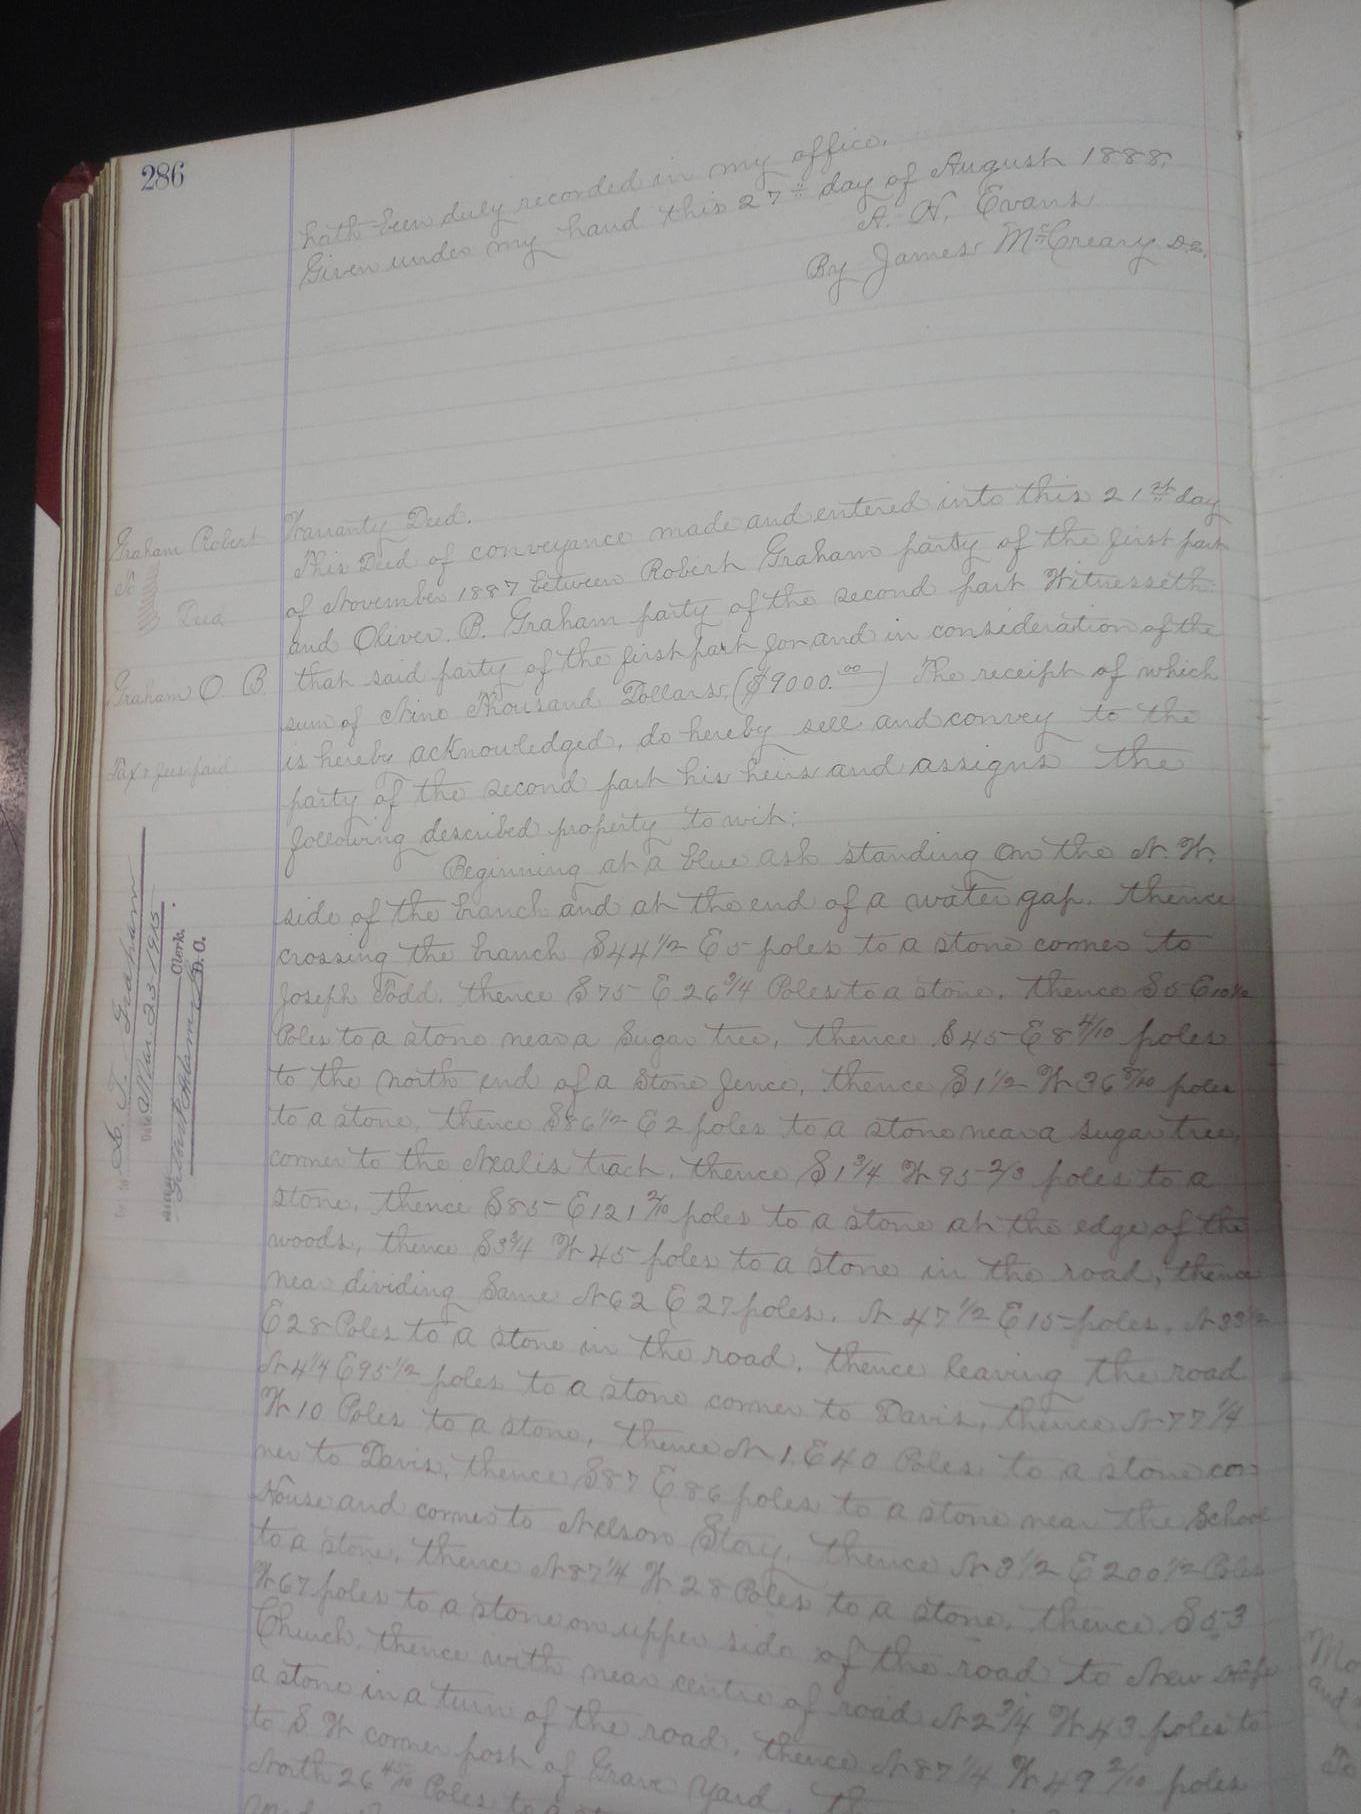 286
hath been duly recorded in my office.
Given under my hand this 27th day of August 1888.
A. N. Evans
By James McCreary D.C.
Graham Robert
To
Deed
Graham O. B.
Tax & fees paid
Warranty Deed.
This Deed of conveyance made and entered into this 21st day
of November 1887 between Robert Graham party of the first part
and Oliver. B. Graham party of the second part Witnesseth:
that said party of the first part for and in consideration of the
sum of Nine Thousand Dollars, ($9000.00) The receipt of which
is hereby acknowledged, do hereby sell and convey to the
party of the second part his heirs and assigns the
following described property to wit:
Beginning at a blue ash standing on the N. W.
side of the branch and at the end of a water gap. thence
crossing the branch S44 1/2 E5 poles to a stone corner to
Joseph Todd. thence S75 E26 3/4 Poles to a stone. thence S5 E10 1/2
Poles to a stone near a Sugar tree, thence S45 E8 4/10 poles
to the north end of a Stone fence, thence S1 1/2 W36 poles
to a stone, thence S86 1/2 E2 poles to a stone near a sugar tree,
corner to the tract, thence S1 3/4 W95 2/3 poles to a
stone, thence S85 E121 2/10 poles to a stone at the edge of the
woods, thence S3 3/4 W45 poles to a stone in the road, thence
near dividing Same N62 E27 poles. N47 1/2 E15 poles. N33 1/2
E28 Poles to a stone in the road. thence leaving the road
N4 1/4 E95 1/2 poles to a stone corner to Davis, thence N77 1/4
W10 Poles to a stone, thence N1 E40 Poles to a stone cor
ner to Davis, thence S87 E86 poles to a stone near the School
House and corner to Nelson Story, thence N3 1/2 E200 1/2 Poles
to a stone, thence N87 1/4 W28 Poles to a stone, thence S53
W67 poles to a stone on upper side of the road to New Hope
Church, thence with near centre of road N2 3/4 W43 poles to
a stone in a turn of the road, thence N87 1/4 W49 2/10 poles
to S. W corner post of Grave Yard,
North 26 Poles to a
S. T. Graham
Date Mar. 23-1915
Clerk.
D.C.